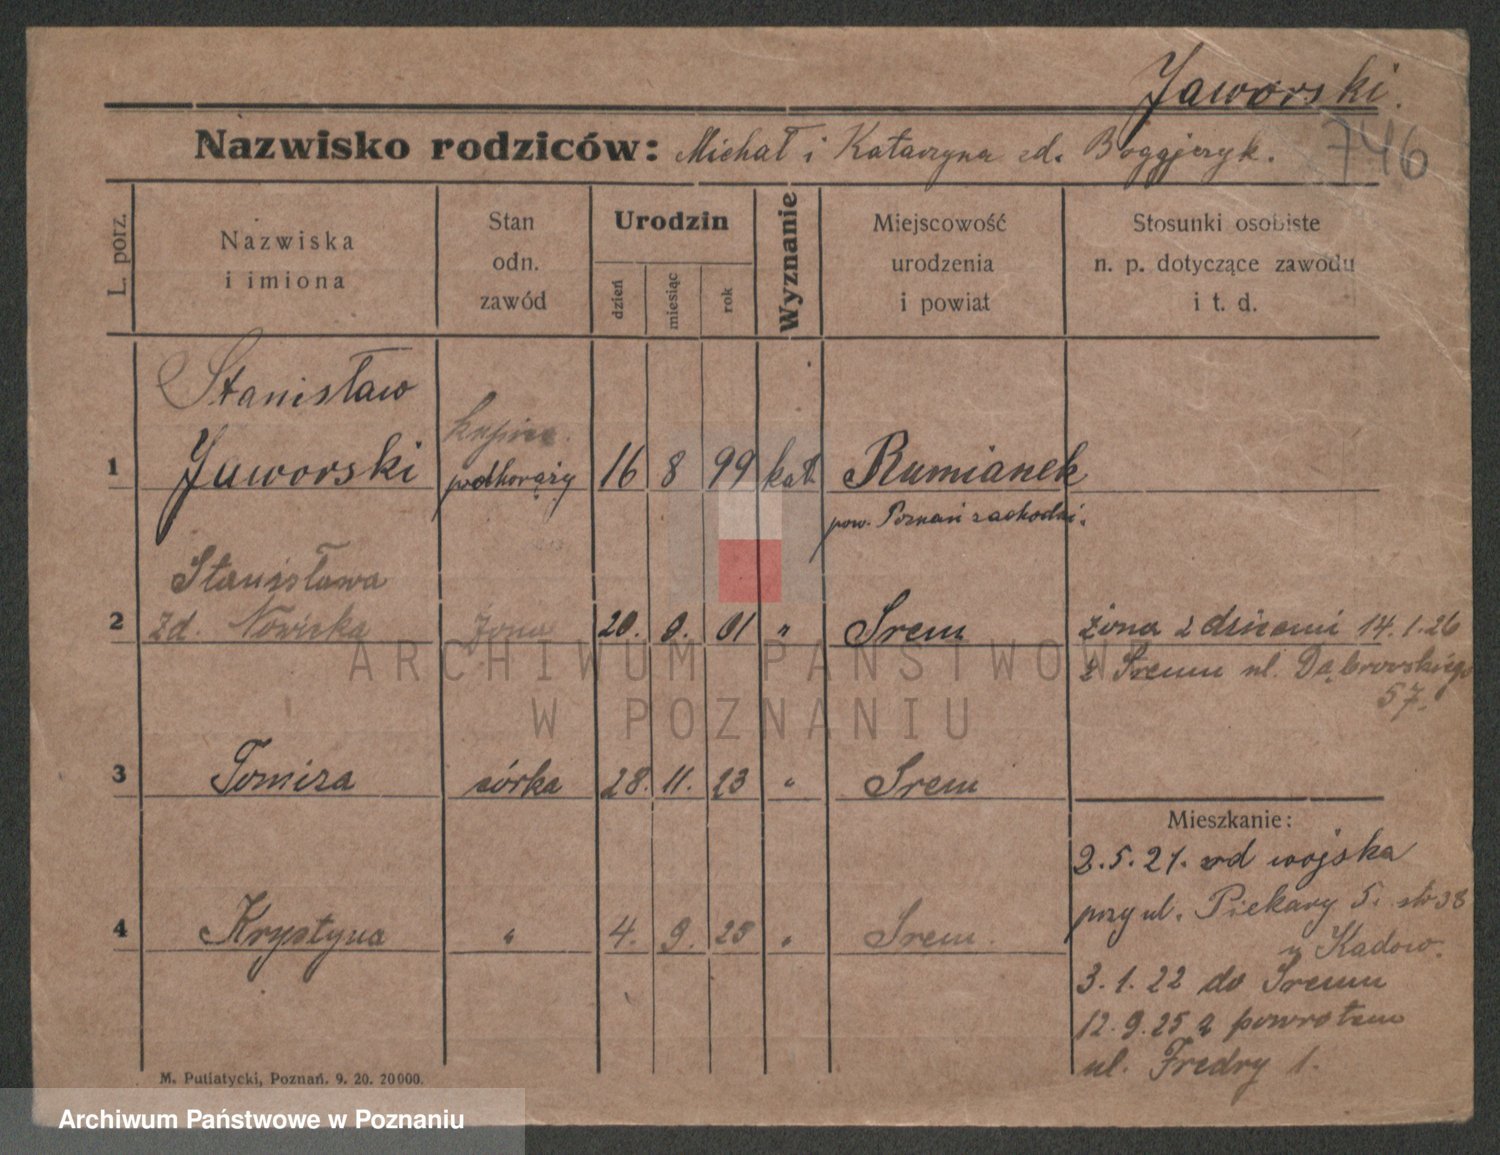 Jaworski.
746
Nazwisko rodziców: Michał i Katarzyna zd.
L. porz.
Nazwiska
i imiona
Stan
odn.
zawód
Urodzin
dzień
miesiąc
rok
Wyznanie
Miejscowość
urodzenia
i powiat
Stosunki osobiste
n. p. dotyczące zawodu
i t. d.
Stanisław
kupiec.
1 Jaworski podhorąży 16 8 99 kat. Rumianek
pow. Poznań zachodni.
Stanisława
2 zd. Nowicka żona 20. 01 " Srem żona z dziećmi 14.1.26
z Sremu ul. Dąbrowskiego
57.
3 córka 28. 11. 23 " Srem
Mieszkanie:
2.5.21. od wojska
przy ul. Piekary 5.
4 Krystyna " 4. 9. 25 " Srem.
3.1.22 do Sremu
12.9.25 z powrotem
ul. Fredry 1.
M. Putiatycki, Poznań. 9. 20. 20000.
ARCHIWUM PAŃSTWOWE
W POZNANIU
Archiwum Państwowe w Poznaniu